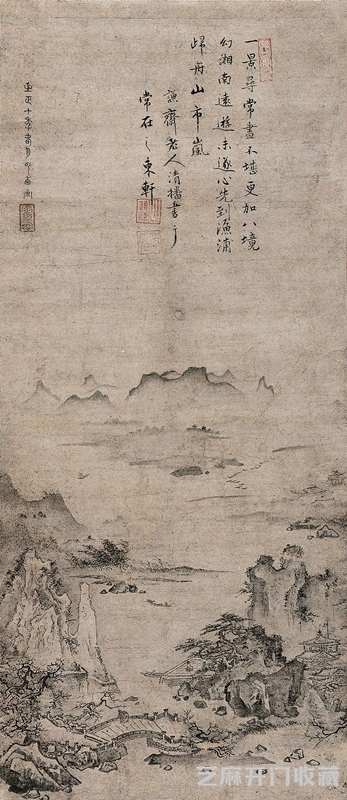 一景尋常畫不堪更加八境
幻湘南遠遊未遂心先到漁浦
歸舟山市嵐
謙齋老人清播書于
常在之東軒
芝麻开门收藏